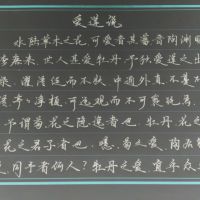 爱莲说
水陆草木之花,可爱者甚蕃。晋陶渊明
李唐来,世人甚爱牡丹。予独爱莲之出
染,濯清涟而不妖,中通外直,不蔓不
亭净植,可远观而不可亵玩焉。
予谓菊,花之隐逸者也;牡丹,花之
花之君子者也。噫!菊之爱,陶后鲜
爱,同予者何人?牡丹之爱,宜乎众